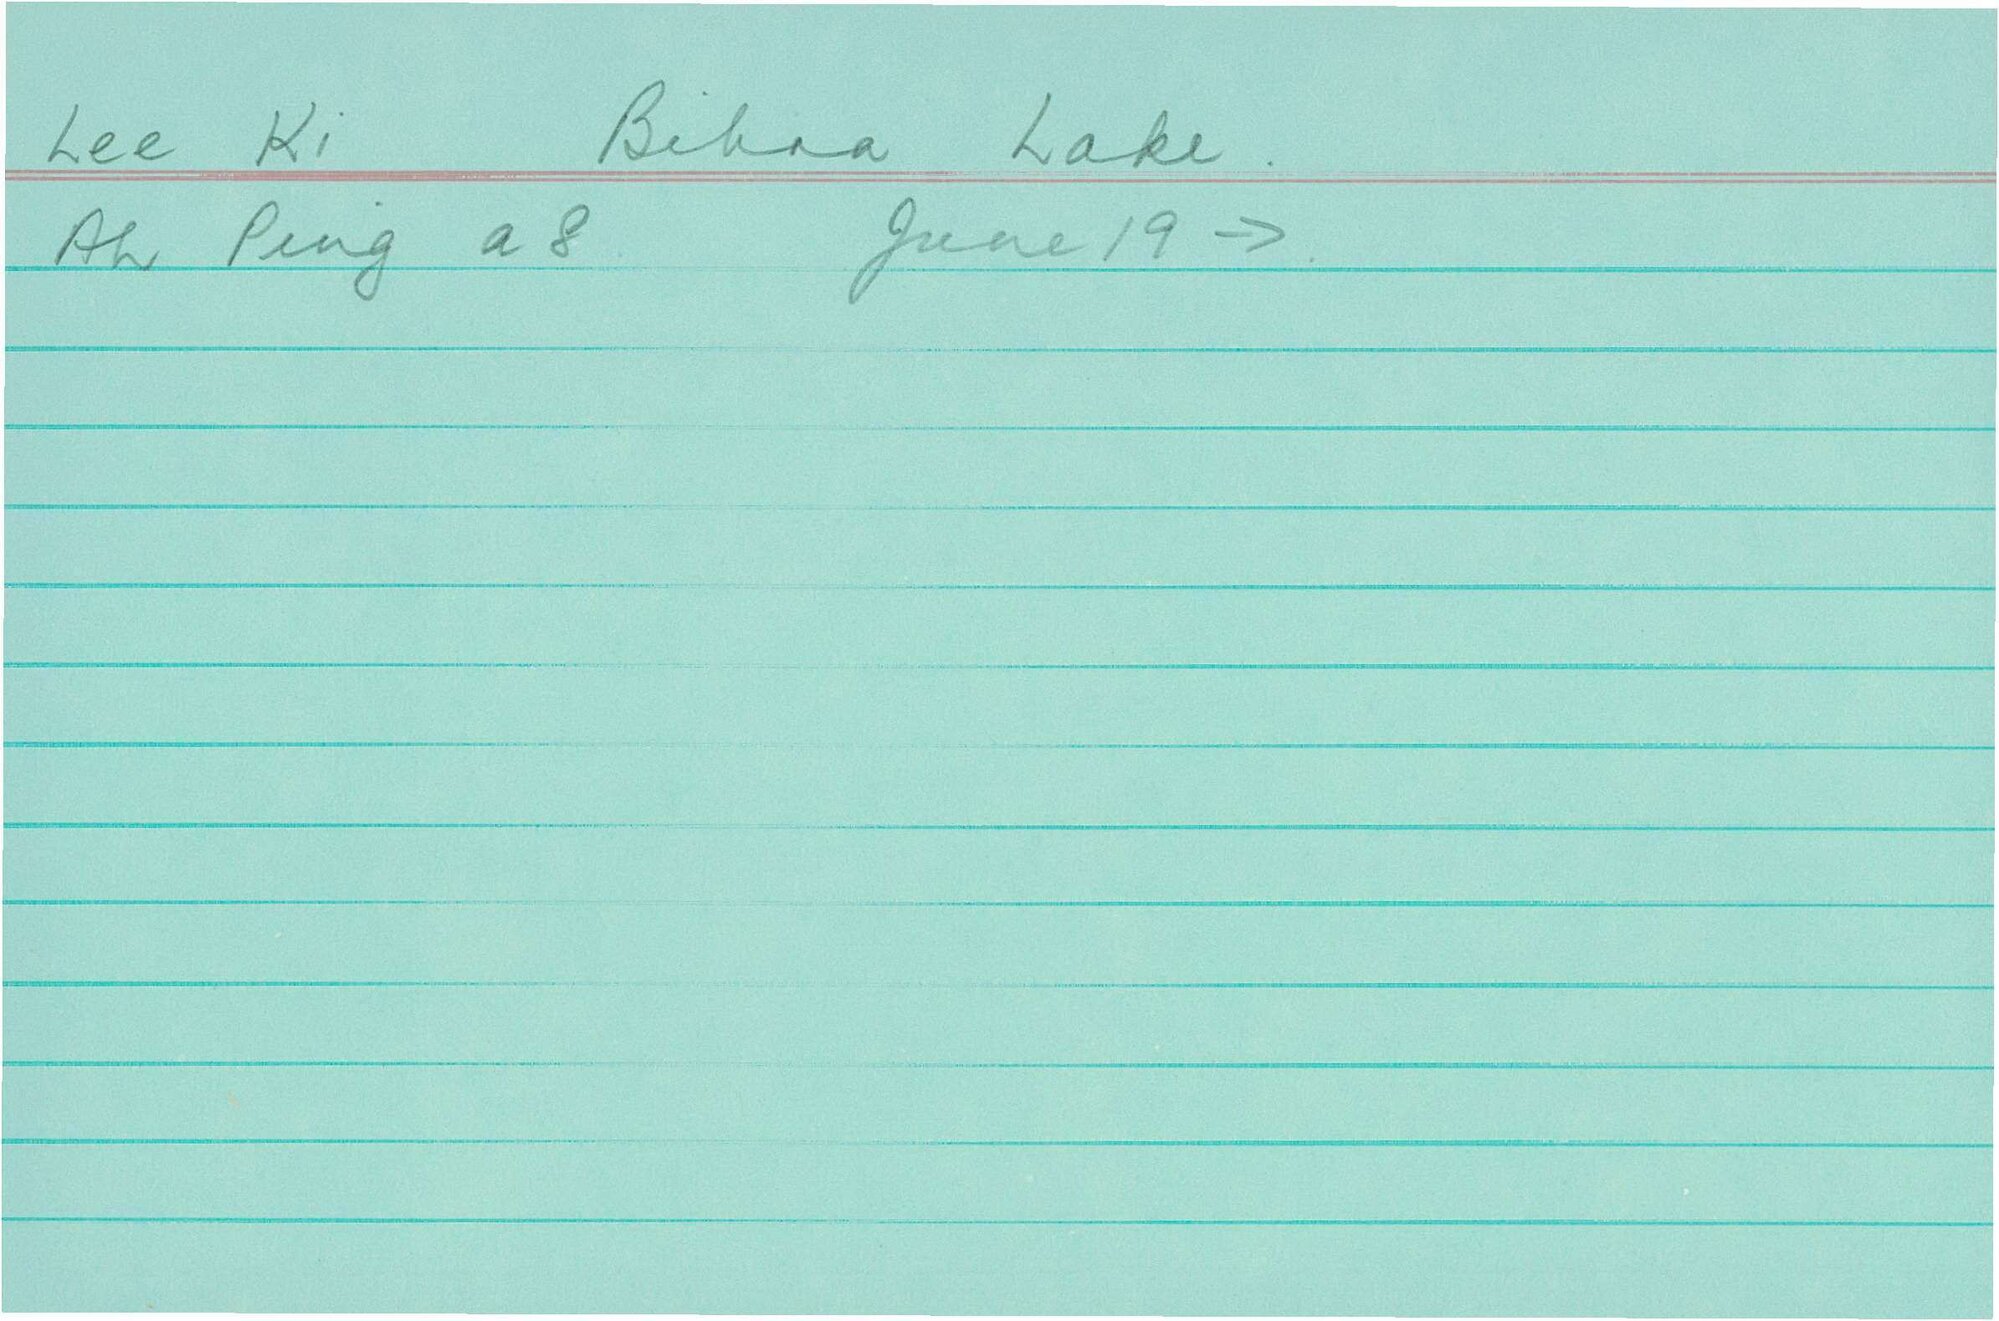 Lee Ki Lake.
Ah Ping a 8. June 19 →.